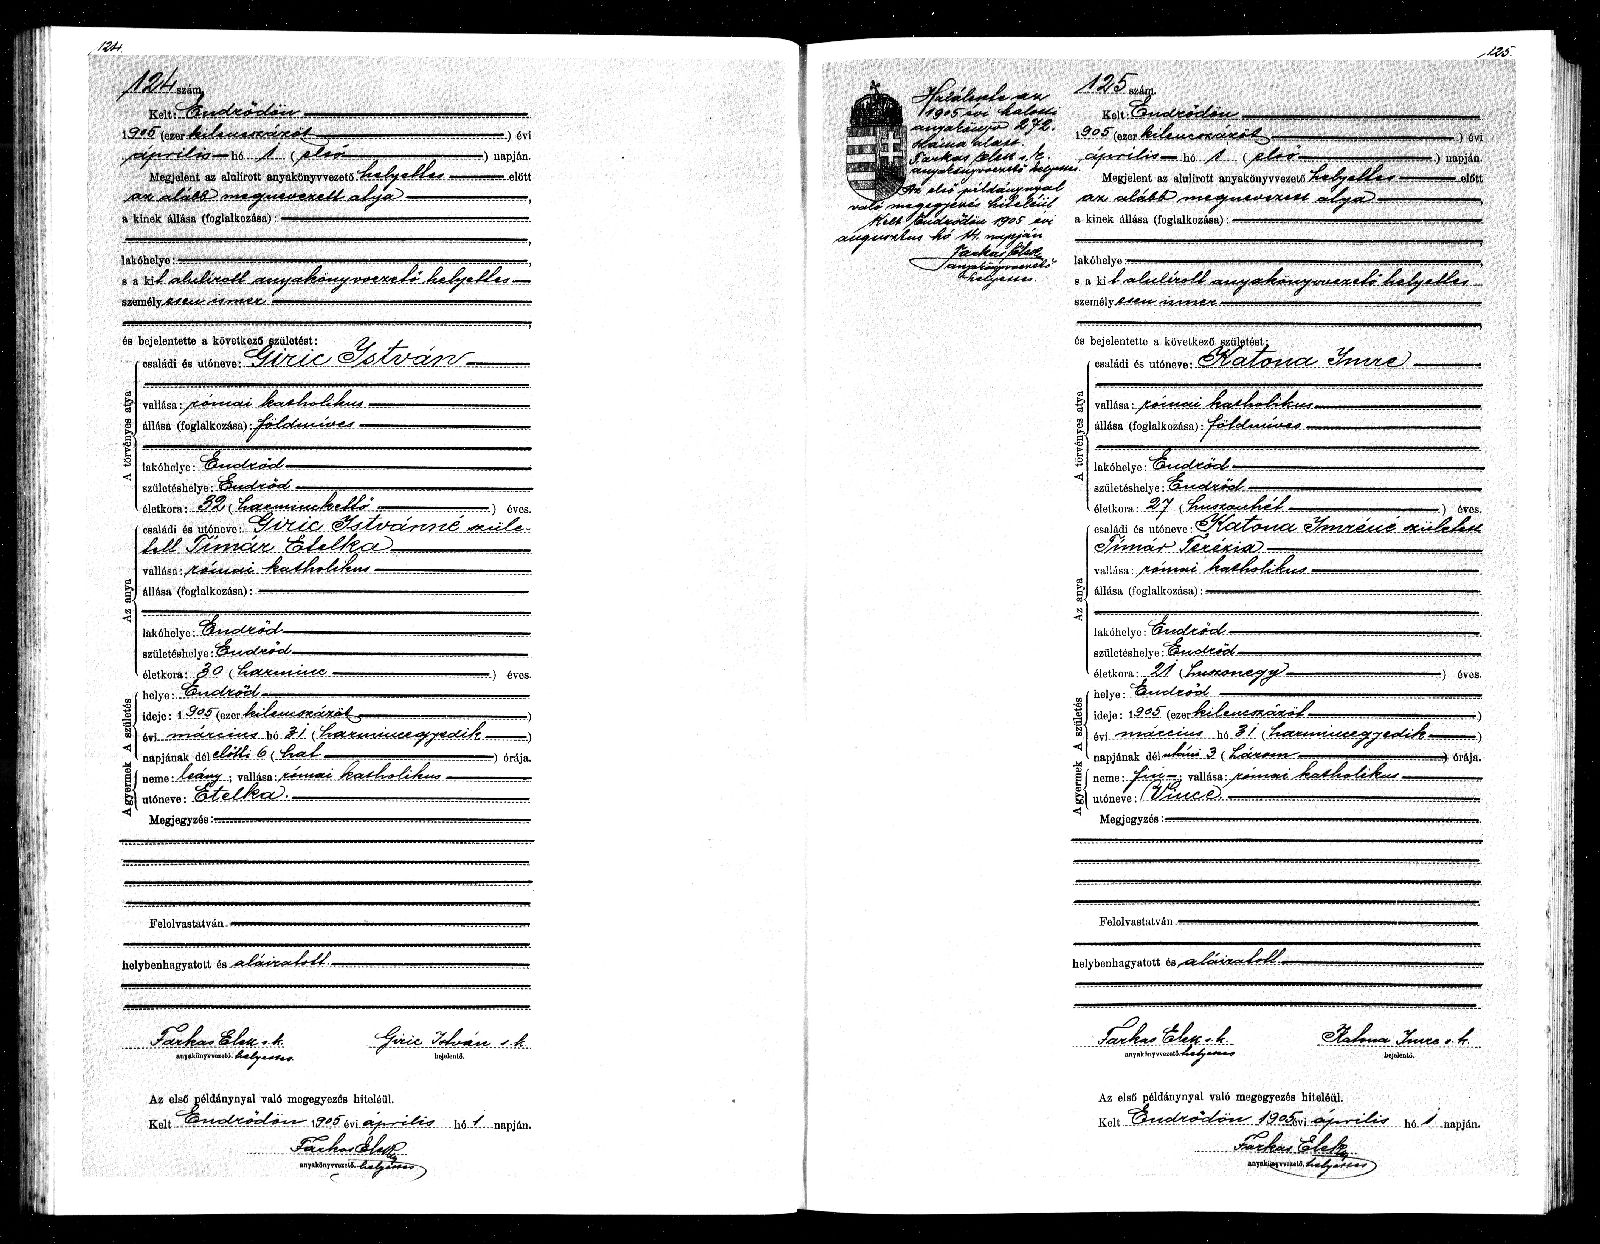 124.
124 szám.
Kelt: Endrődön
1905 (ezer kilencszázöt) évi
április hó 1 (első) napján.
Megjelent az alulirott anyakönyvvezető helyettes előtt
az alább megnevezett atyja,
a kinek állása (foglalkozása):
,
lakóhelye: ,
s a kit alulirott anyakönyvvezető helyettes
személyesen ismer
,
és bejelentette a következő születést:
A törvényes atya
családi és utóneve: Giric István
vallása: római katholikus
állása (foglalkozása): földmíves
lakóhelye: Endrőd
születéshelye: Endrőd
életkora: 32 (harminckettő) éves.
Az anya
családi és utóneve: Giric Istvánné szüle-
tett Tímár Etelka
vallása: római katholikus
állása (foglalkozása):
lakóhelye: Endrőd
születéshelye: Endrőd
életkora: 30 (harminc) éves.
A születés
helye: Endrőd
ideje: 1905 (ezer kilencszázöt)
évi március hó 31 (harmincegyedik)
napjának dél előtti 6 (hat) órája.
A gyermek
neme: leány; vallása: római katholikus
utóneve: Etelka.
Megjegyzés:
Felolvastatván
helybenhagyatott és aláiratott.
Farkas Elek s. k. Giric István s. k.
anyakönyvvezető. helyettes bejelentő.
Az első példánynyal való megegyezés hiteléül.
Kelt Endrődön 1905 évi április hó 1 napján.
Farkas Elek
anyakönyvvezető. helyettes
125
Haláleste az
1905 évi halotti
anyakönyv 272.
száma alatt.
Farkas Elek s. k.
anyakönyvvezető helyettes.
Az első példánynyal
való megegyezés hiteléül
Kelt Endrődön 1905 évi
augusztus hó 14. napján
Farkas Elek
anyakönyvvezető
helyettes.
125 szám.
Kelt: Endrődön
1905 (ezer kilencszázöt) évi
április hó 1 (első) napján.
Megjelent az alulirott anyakönyvvezető helyettes előtt
az alább megnevezett atyja,
a kinek állása (foglalkozása):
,
lakóhelye: ,
s a kit alulirott anyakönyvvezető helyettes
személyesen ismer
,
és bejelentette a következő születést:
A törvényes atya
családi és utóneve: Katona Imre
vallása: római katholikus
állása (foglalkozása): földmíves
lakóhelye: Endrőd
születéshelye: Endrőd
életkora: 27 (huszonhét) éves.
Az anya
családi és utóneve: Katona Imréné született
Tímár Terézia
vallása: római katholikus
állása (foglalkozása):
lakóhelye: Endrőd
születéshelye: Endrőd
életkora: 21 (huszonegy) éves.
A születés
helye: Endrőd
ideje: 1905 (ezer kilencszázöt)
évi március hó 31 (harmincegyedik)
napjának dél utáni 3 (három) órája.
A gyermek
neme: fiú; vallása: római katholikus
utóneve: Vince
Megjegyzés:
Felolvastatván
helybenhagyatott és aláiratott
Farkas Elek s. k. Katona Imre s. k.
anyakönyvvezető. helyettes bejelentő.
Az első példánynyal való megegyezés hiteléül.
Kelt Endrődön 1905 évi április hó 1 napján.
Farkas Elek
anyakönyvvezető. helyettes